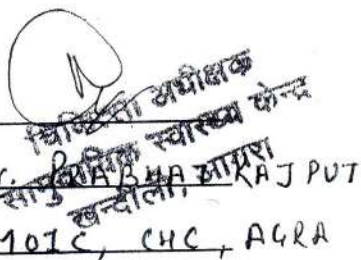 चिकित्सा अधीक्षक
सामुदायिक स्वास्थ्य केन्द्र
खन्दौली, आगरा
PRABHAT RAJPUT
MOIC, CHC, AGRA